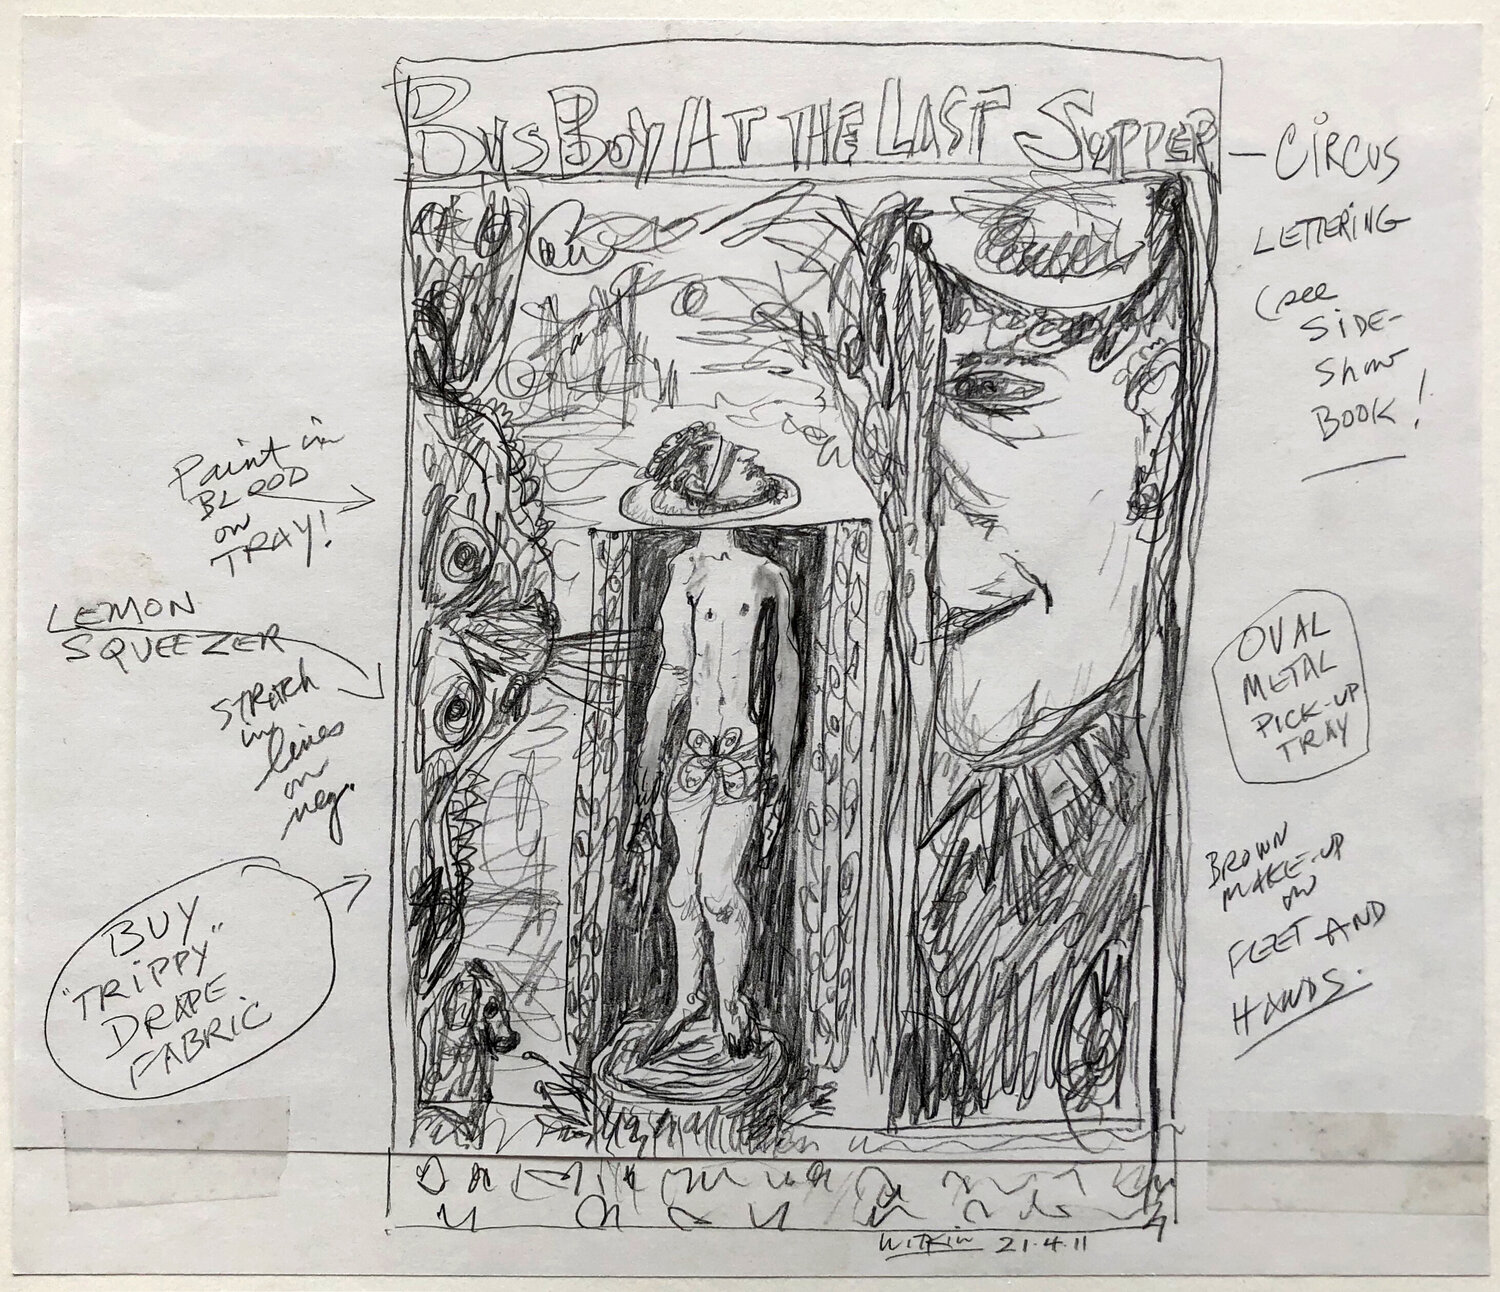 BusBoy At THE LAST SuppER
— CiRCUS
LETTERiNG
(see
SiDE-
Show
BOOK!
Paint in
BLOOD
on
TRAY!
LEMON
SQUEEZER
lines
on
neg.
BUY
"TRiPPY"
DRAPE
FABRiC
OVAL
METAL
PiCK-UP
TRAY
BROWN
MAKE-UP
on
FEET AND
HANDS.
WiTKiN 21·4·11